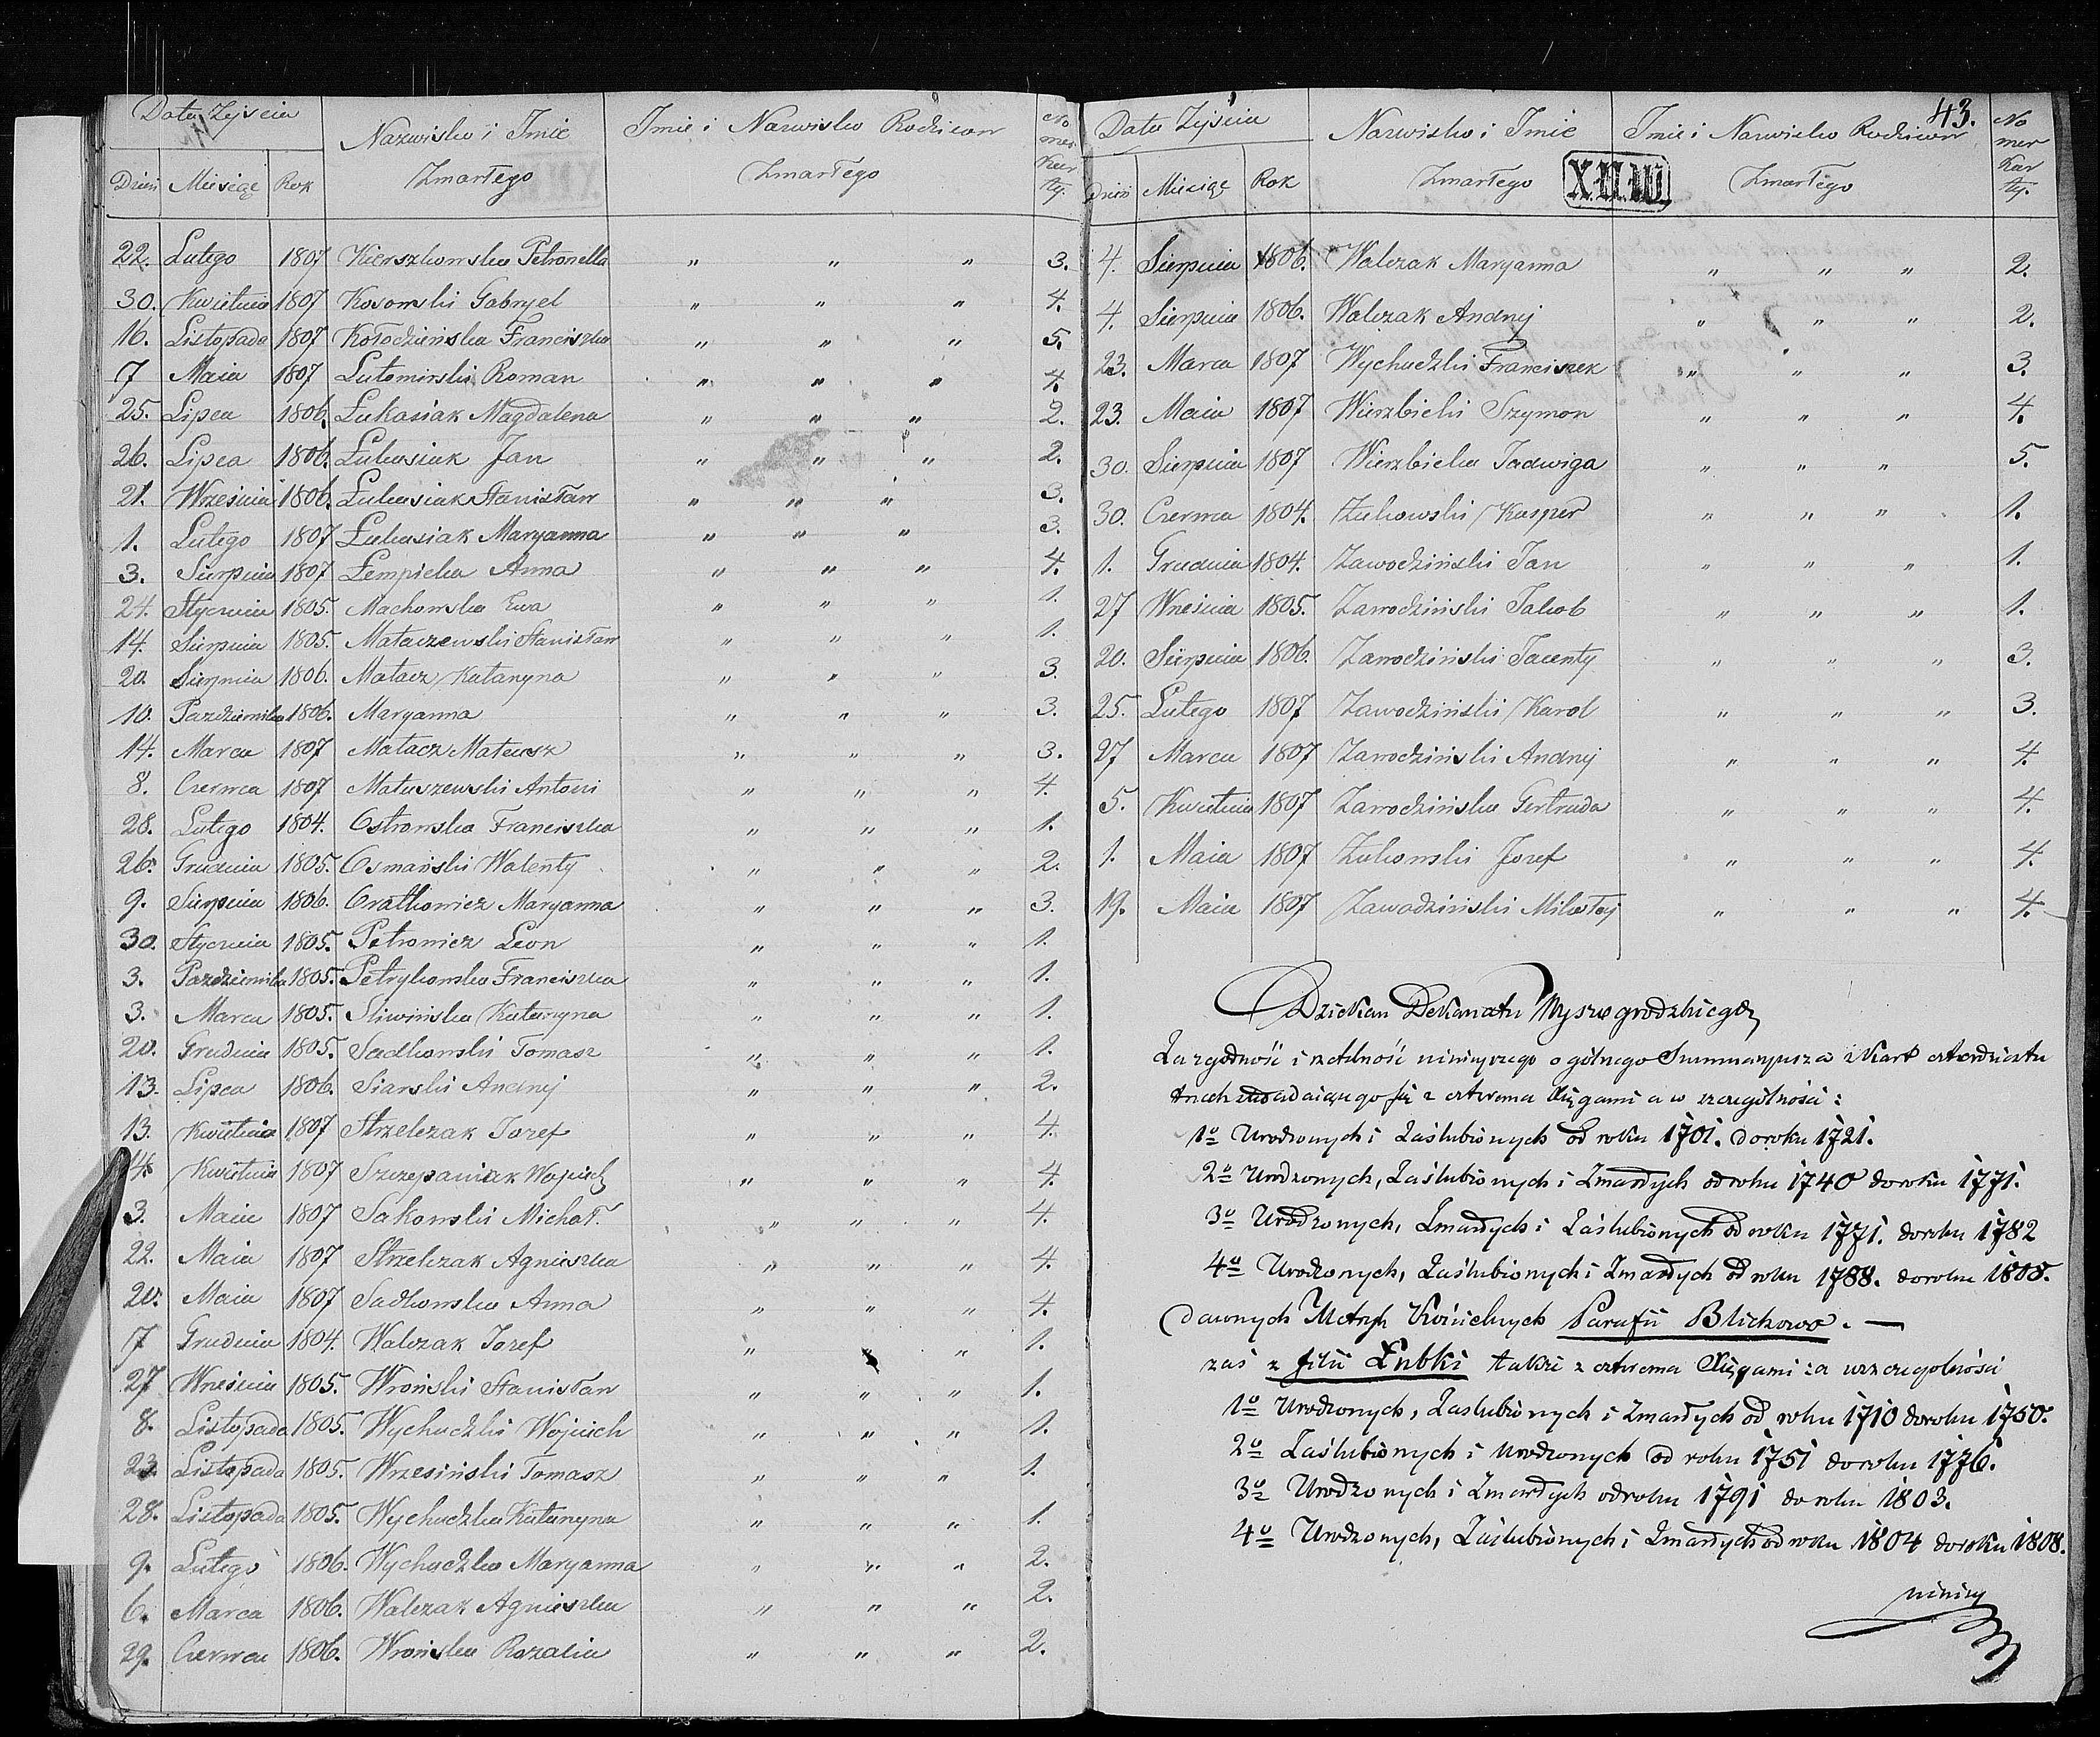 Data Zejścia | Nazwisko i Imie Zmarłego | Imie i Nazwisko Rodzicow Zmarłego | No mer Kar ty.
Dzień | Miesiąc | Rok
22. Lutego 1807 Kierszkowska Petronella " " " 3.
30. Kwietnia 1807 Kosowski Gabryel " " " 4.
16. Listopada 1807 Kołodzieńska Franciszka " " " 5.
7 Maia 1807 Lutomirski Roman " " " 4.
25. Lipca 1806. Łukasiak Magdalena " " " 2.
26. Lipca 1806. Łukasiak Jan " " " 2.
21. Wrzesnia 1806. Łukasiak Stanisław " " " 3.
1. Lutego 1807 Łukasiak Maryanna " " " 3.
3. Sierpnia 1807 Łempicka Anna " " " 4.
24. Stycznia 1805. Machowska Ewa " " " 1.
14. Sierpnia 1805. Mataczewski Stanisław " " " 1.
20. Sierpnia 1806. Matacz Katarzyna " " " 3.
10. Pazdziernika 1806. Maryanna " " " 3.
14. Marca 1807 Matacz Mateusz " " " 3.
8. Czerwca 1807 Matuszewski Antoni " " " 4.
28. Lutego 1804. Ostrowska Franciszka " " " 1.
26. Grudnia 1805. Osmański Walenty " " " 2.
9. Sierpnia 1806. Orathowicz Maryanna " " " 3.
30. Stycznia 1805. Petrowicz Leon " " " 1.
3. Pazdziernika 1805. Petrykowska Franciszka " " " 1.
3. Marca 1805. Sliwińska Katarzyna " " " 1.
20. Grudnia 1805. Sadkowski Tomasz " " " 1.
13. Lipca 1806. Siarski Andrzej " " " 2.
13. Kwietnia 1807 Strzelczak Jozef " " " 4.
14. Kwietnia 1807 Szczepaniak Wojciech " " " 4.
3. Maia 1807 Sakowski Michał. " " " 4.
22. Maia 1807 Strzelczak Agnieszka " " " 4.
20. Maia 1807 Sadkowska Anna " " " 4.
17 Grudnia 1804. Walczak Jozef " " " 1.
27 Wrzesnia 1805. Wroński Stanisław " " " 1.
8. Listopada 1805. Wychudzki Wojciech " " " 1.
23. Listopada 1805. Wrzesiński Tomasz " " " 1.
28. Listopada 1805. Wychudzka Katarzyna " " " 1.
9. Lutego 1806. Wychudzka Maryanna " " " 2.
6. Marca 1806. Walczak Agnieszka " " " 2.
29. Czerwca 1806. Wrońska Rozalia " " " 2.
43.
Data Zejścia | Nazwisko i Imie Zmarłego | Imie i Nazwisko Rodzicow Zmarłego | No mer Kar ty.
Dzień | Miesiąc | Rok
4. Sierpnia 1806. Walczak Maryanna " " " 2.
4. Sierpnia 1806. Walczak Andrzej " " " 2.
23. Marca 1807 Wychudzki Franciszek " " " 3.
23. Maia 1807 Wierzbicki Szymon " " " 4.
30. Sierpnia 1807 Wierzbicka Jadwiga " " " 5.
30. Czerwca 1804. Żukowski Kasper " " " 1.
1. Grudnia 1804. Zawodziński Jan " " " 1.
27 Września 1805. Zawodziński Jakob " " " 1.
20. Sierpnia 1806. Zawodziński Jacenty " " " 3.
25. Lutego 1807 Zawodziński Karol " " " 3.
27 Marca 1807 Zawodziński Andrzej " " " 4.
5. Kwietnia 1807 Zawodzińska Gertruda " " " 4.
1. Maia 1807 Żukowski Jozef " " " 4.
19. Maia 1807 Zawadziński Mikołaj " " " 4.
Dziekan Dekanatu Wyszogrodzkiego
Za zgodność i rzetelność niniejszego ogólnego Summaryusza z Kart czterdziestu
trzech składaiącego się z czterema Xięgami a w szczególności:
1o Urodzonych i Zaślubionych od roku 1701. do roku 1721.
2o Urodzonych, Zaślubionych i Zmarłych od roku 1740 do roku 1771.
3o Urodzonych, Zmarłych i Zaślubionych od roku 1771. do roku 1782
4o Urodzonych, Zaślubionych i Zmarłych od roku 1788. do roku 1808.
dawnych Metryk Kościelnych Parafii Blichowo. —
zaś z filii Łubki także z czterema Xięgami: a w szczególności
1o Urodzonych, Zaslubionych i Zmarłych od roku 1710 do roku 1750.
2o Zaślubionych i Urodzonych od roku 1751 do roku 1776.
3o Urodzonych i Zmarłych od roku 1791 do roku 1803.
4o Urodzonych, Zaślubionych i Zmarłych od roku 1804 do roku 1808.
niniey